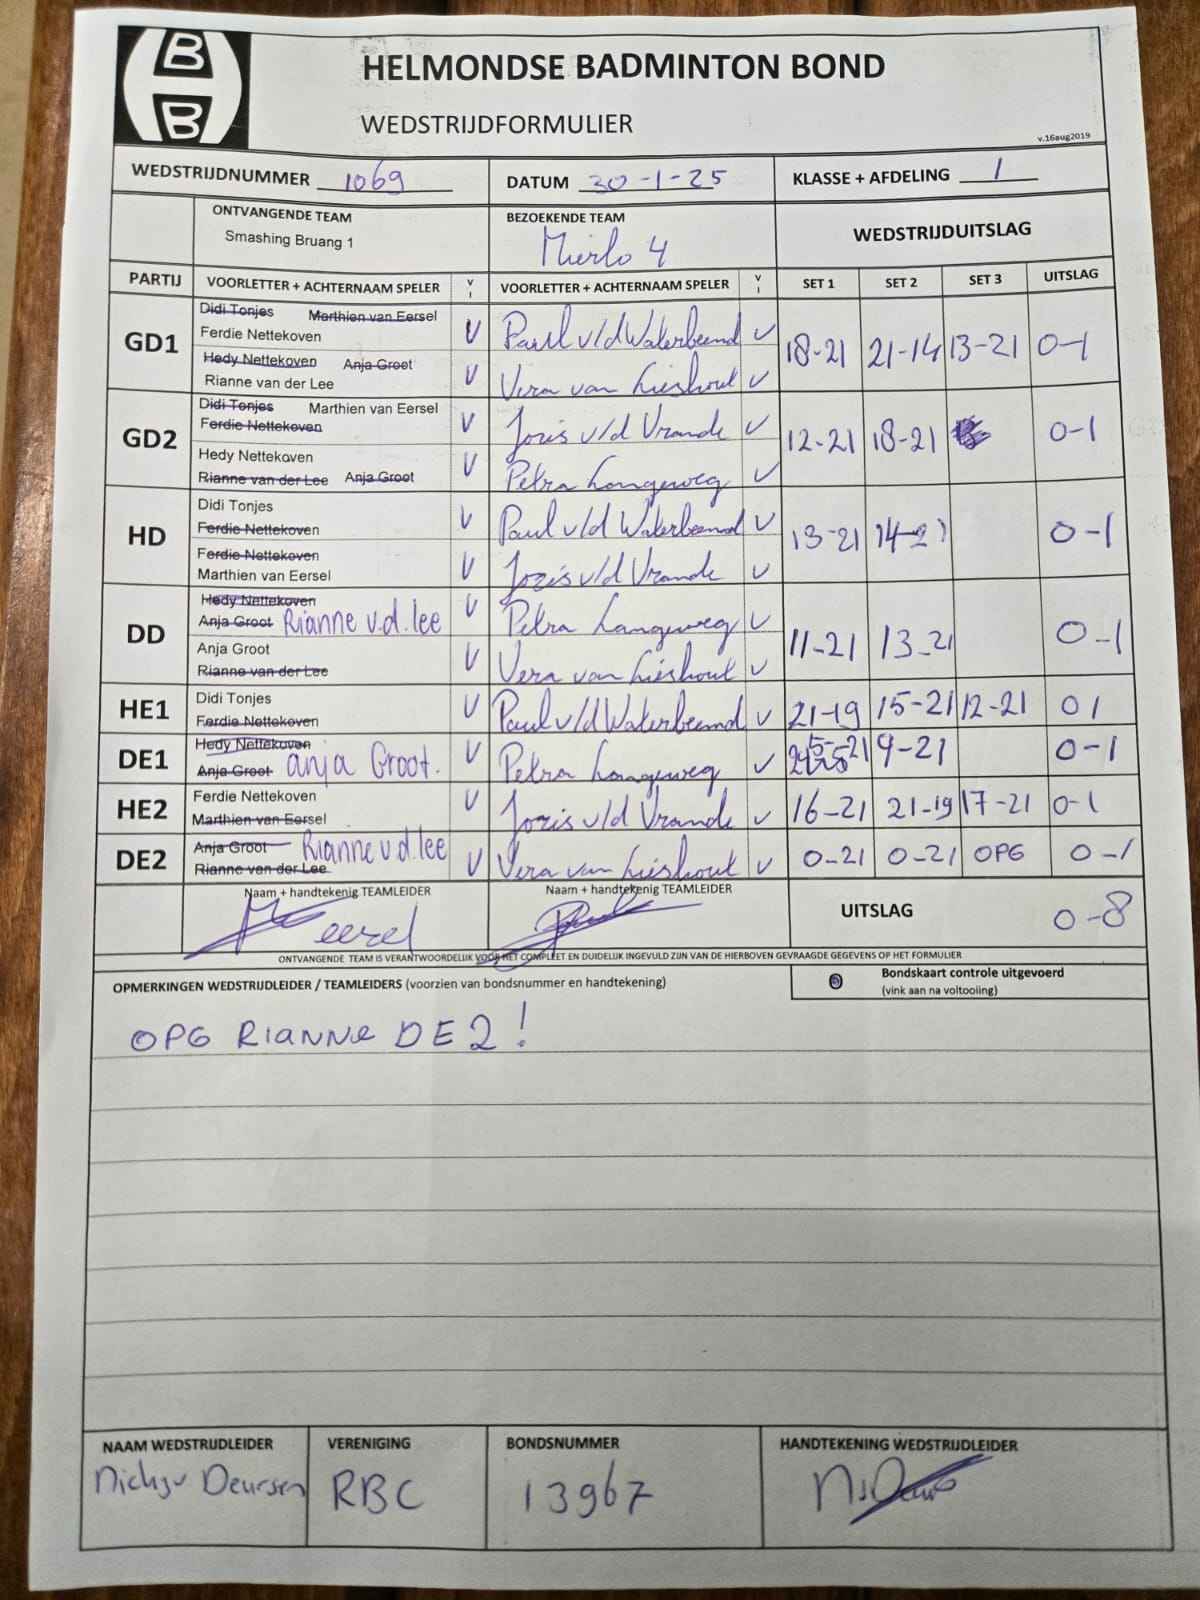 HBB
HELMONDSE BADMINTON BOND
WEDSTRIJDFORMULIER
v.16aug2019
WEDSTRIJDNUMMER 1069 DATUM 30-1-25 KLASSE + AFDELING 1
ONTVANGENDE TEAM BEZOEKENDE TEAM WEDSTRIJDUITSLAG
Smashing Bruang 1 Mierlo 4
PARTIJ VOORLETTER + ACHTERNAAM SPELER VI VOORLETTER + ACHTERNAAM SPELER VI SET 1 SET 2 SET 3 UITSLAG
GD1 Didi Tonjes Marthien van Eersel
Ferdie Nettekoven V Paul v/d Waterbeemd V 18-21 21-14 13-21 0-1
Hedy Nettekoven Anja Groot
Rianne van der Lee V Vera van Lieshout V
GD2 Didi Tonjes Marthien van Eersel
Ferdie Nettekoven V Joris v/d Vrande V 12-21 18-21 0-1
Hedy Nettekoven
Rianne van der Lee Anja Groot V Petra Langeweg V
HD Didi Tonjes
Ferdie Nettekoven V Paul v/d Waterbeemd V 13-21 14-21 0-1
Ferdie Nettekoven
Marthien van Eersel V Joris v/d Vrande V
DD Hedy Nettekoven
Anja Groot Rianne v.d. lee V Petra Langeweg V 11-21 13-21 0-1
Anja Groot
Rianne van der Lee V Vera van Lieshout V
HE1 Didi Tonjes
Ferdie Nettekoven V Paul v/d Waterbeemd V 21-19 15-21 12-21 0 1
DE1 Hedy Nettekoven
Anja Groot anja Groot. V Petra Langeweg V 5-21 9-21 0-1
HE2 Ferdie Nettekoven
Marthien van Eersel V Joris v/d Vrande V 16-21 21-19 17-21 0-1
DE2 Anja Groot Rianne v.d. lee
Rianne van der Lee V Vera van Lieshout V 0-21 0-21 OPG 0-1
Naam + handtekenig TEAMLEIDER Naam + handtekenig TEAMLEIDER UITSLAG 0-8
eersel
ONTVANGENDE TEAM IS VERANTWOORDELIJK VOOR HET COMPLEET EN DUIDELIJK INGEVULD ZIJN VAN DE HIERBOVEN GEVRAAGDE GEGEVENS OP HET FORMULIER
OPMERKINGEN WEDSTRIJDLEIDER / TEAMLEIDERS (voorzien van bondsnummer en handtekening) Bondskaart controle uitgevoerd
(vink aan na voltooling)
OPG RIANNE DE2!
NAAM WEDSTRIJDLEIDER VERENIGING BONDSNUMMER HANDTEKENING WEDSTRIJDLEIDER
Nick v Deursen RBC 13967